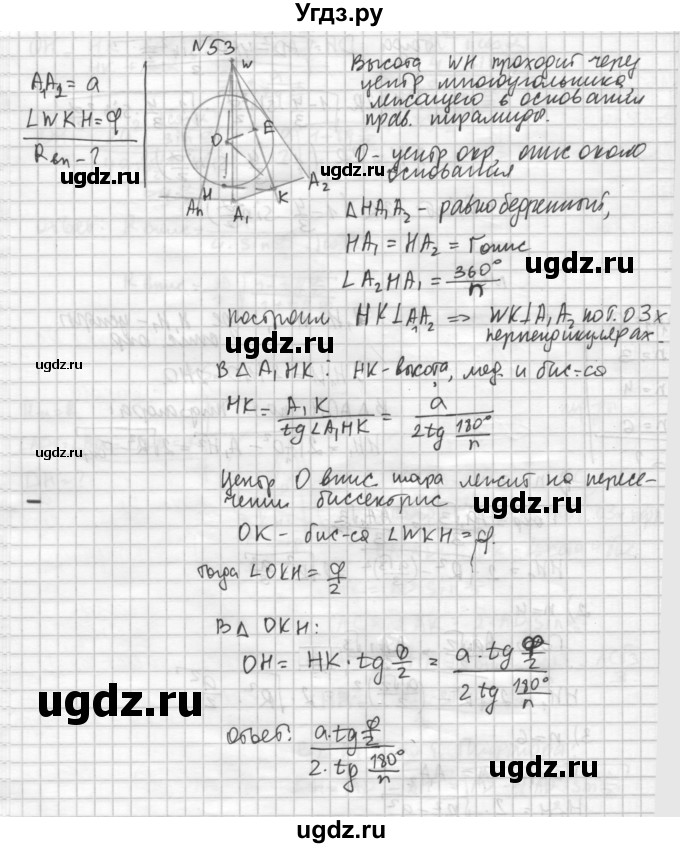 Угдз.ру
N53
A₁A₂ = a
∠WKH = φ
Rвп - ?
W
O
E
H
K
A₂
Aₙ
A₁
Высота WH проходит через
центр многоугольника,
лежащего в основании
прав. пирамиды.
O - центр окр, опис около
основания
△HA₁A₂ - равнобедренный,
HA₁ = HA₂ = rопис
∠A₂HA₁ = 360°/n
построим HK⊥A₁A₂ => WK⊥A₁A₂ по т. о 3х
перпендикулярах.
В △ A₁HK: HK - высота, мед. и бис-са
HK = A₁K / tg∠A₁HK = a / 2tg 180°/n
Центр O впис. шара лежит на пересе-
чении биссектрис
OK - бис-са ∠WKH = φ.
тогда ∠OKH = φ/2
В △ OKH:
OH = HK · tg φ/2 = a · tg φ/2 / 2 tg 180°/n
Ответ: a · tg φ/2 / 2 · tg 180°/n
ugdz.ru
ugdz.ru
ugdz.ru
ugdz.ru
ugdz.ru
ugdz.ru
ugdz.ru
ugdz.ru
ugdz.ru
ugdz.ru
ugdz.ru
ugdz.ru
ugdz.ru